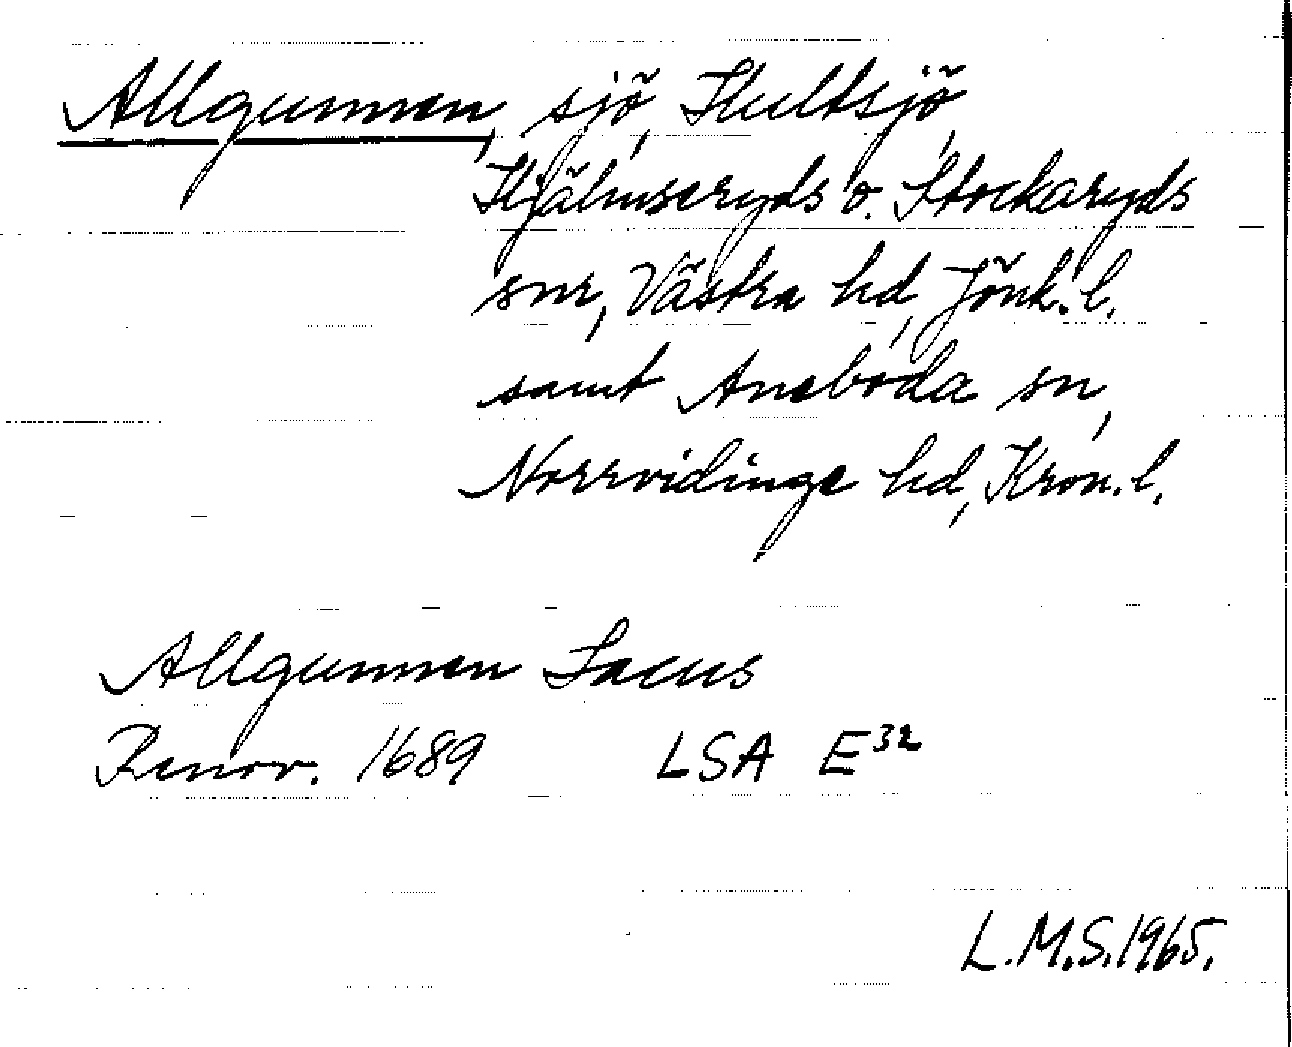 Allgunnen, sjö, Hultsjö,
Hjälmseryds o. Stockaryds
snr, Västra hd, Jönk. l.
samt Aneboda sn,
Norrvidinge hd, Kron. l.
Allgunnen Lacus
Renov. 1689 LSA E32
L.M.S. 1965.